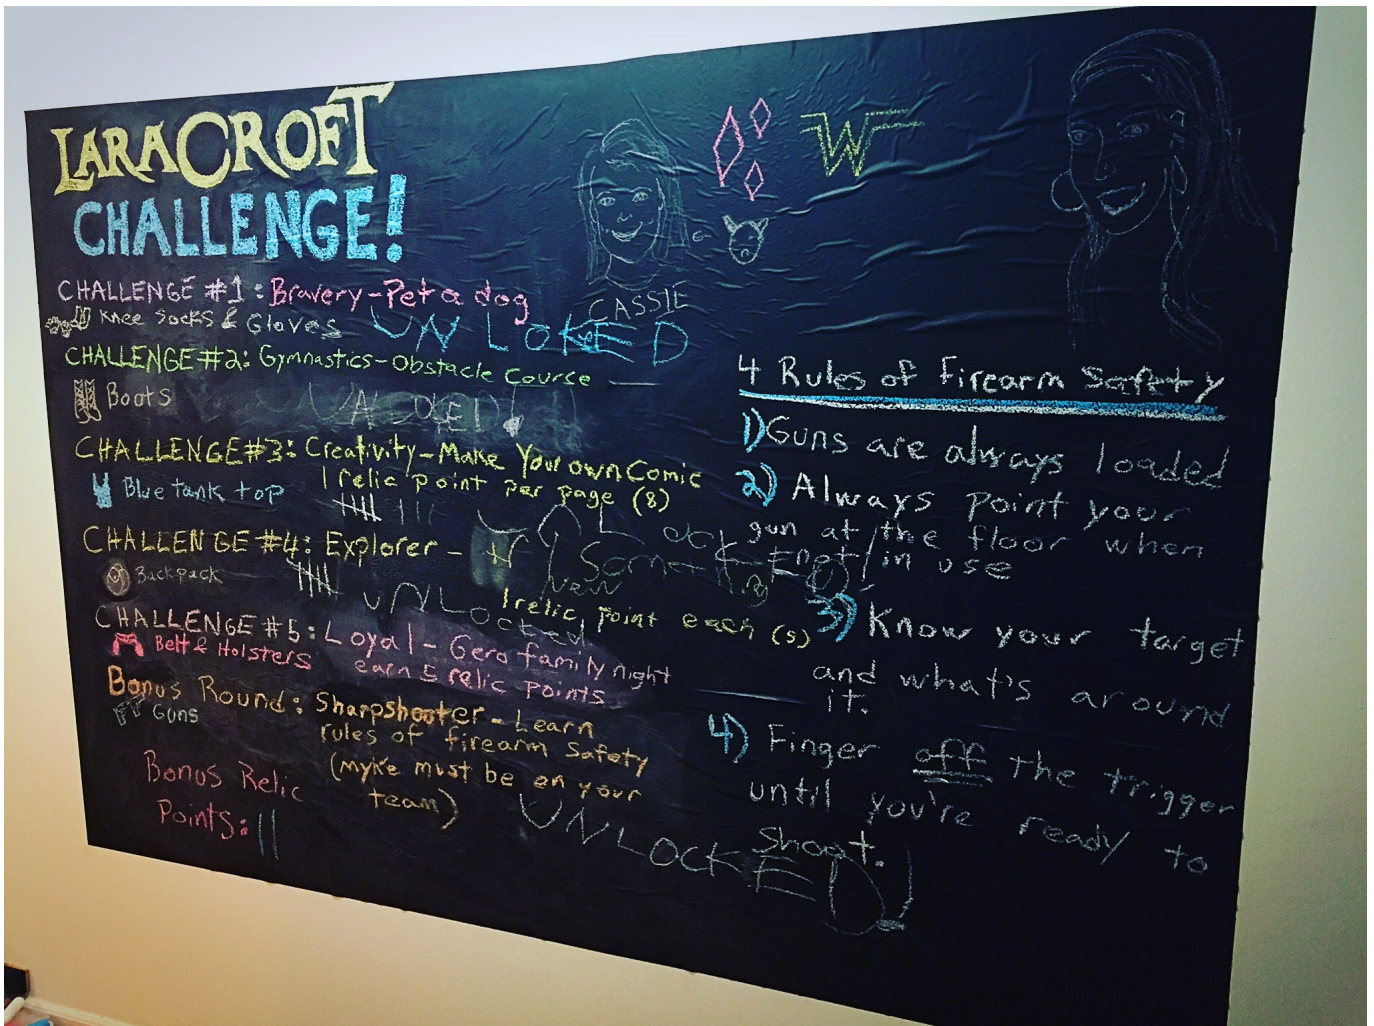 LARA CROFT
CHALLENGE!
CHALLENGE #1: Bravery-Pet a dog
Knee Socks & Gloves
UNLOKED
CASSIE
W
CHALLENGE #2: Gymnastics-Obstacle Course
Boots
CHALLENGE #3: Creativity-Make Your own Comic
1 relic point per page (8)
Blue tank top
CHALLENGE #4: Explorer-
Backpack
UNLocked
1 relic point each (5)
CHALLENGE #5: Loyal-Gero family night
earn 5 relic points
Belt & Holsters
Bonus Round: Sharpshooter-Learn
rules of firearm Safety
(myke must be on your
team)
Guns
UNLOCKED!
Bonus Relic
Points:
4 Rules of Firearm Safety
1) Guns are always loaded
2) Always point your
gun at the floor when
not in use
3) Know your target
and what's around
it.
4) Finger off the trigger
until you're ready to
shoot.